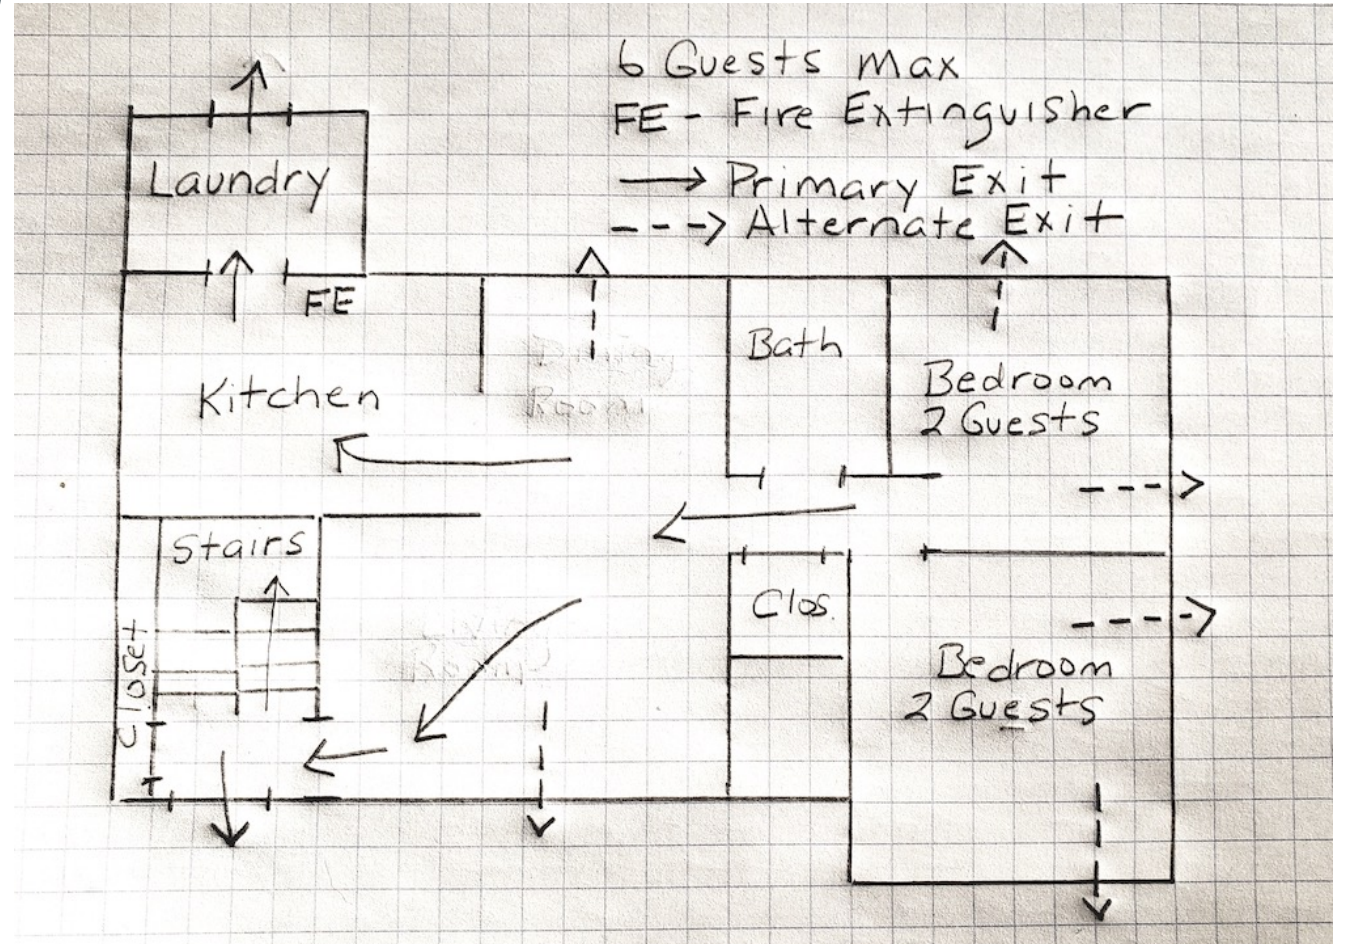 6 Guests max
FE - Fire Extinguisher
Primary Exit
Alternate Exit
Laundry
FE
Kitchen
Dining
Room
Bath
Bedroom
2 Guests
Stairs
Closet
Living
Room
Clos.
Bedroom
2 Guests